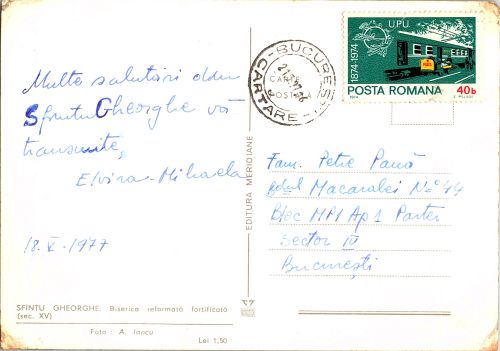 Multe salutări din
Sfîntu Gheorghe vă
transmite,
Elvira-Mihaela
18.V.1977
SFÎNTU GHEORGHE. Biserica reformată fortificată
(sec. XV)
Foto: A. Iancu
Lei 1,50
EDITURA MERIDIANE
BUCUREȘTI
CARTARE
CARTARE
POSTALA
1874-1974
U.P.U.
POSTA ROMANA
1974
40b
Fam. Petre Pană
Bdul Macaralei No 44
Bloc HM1 Ap 1 Parter
Sector IV
București